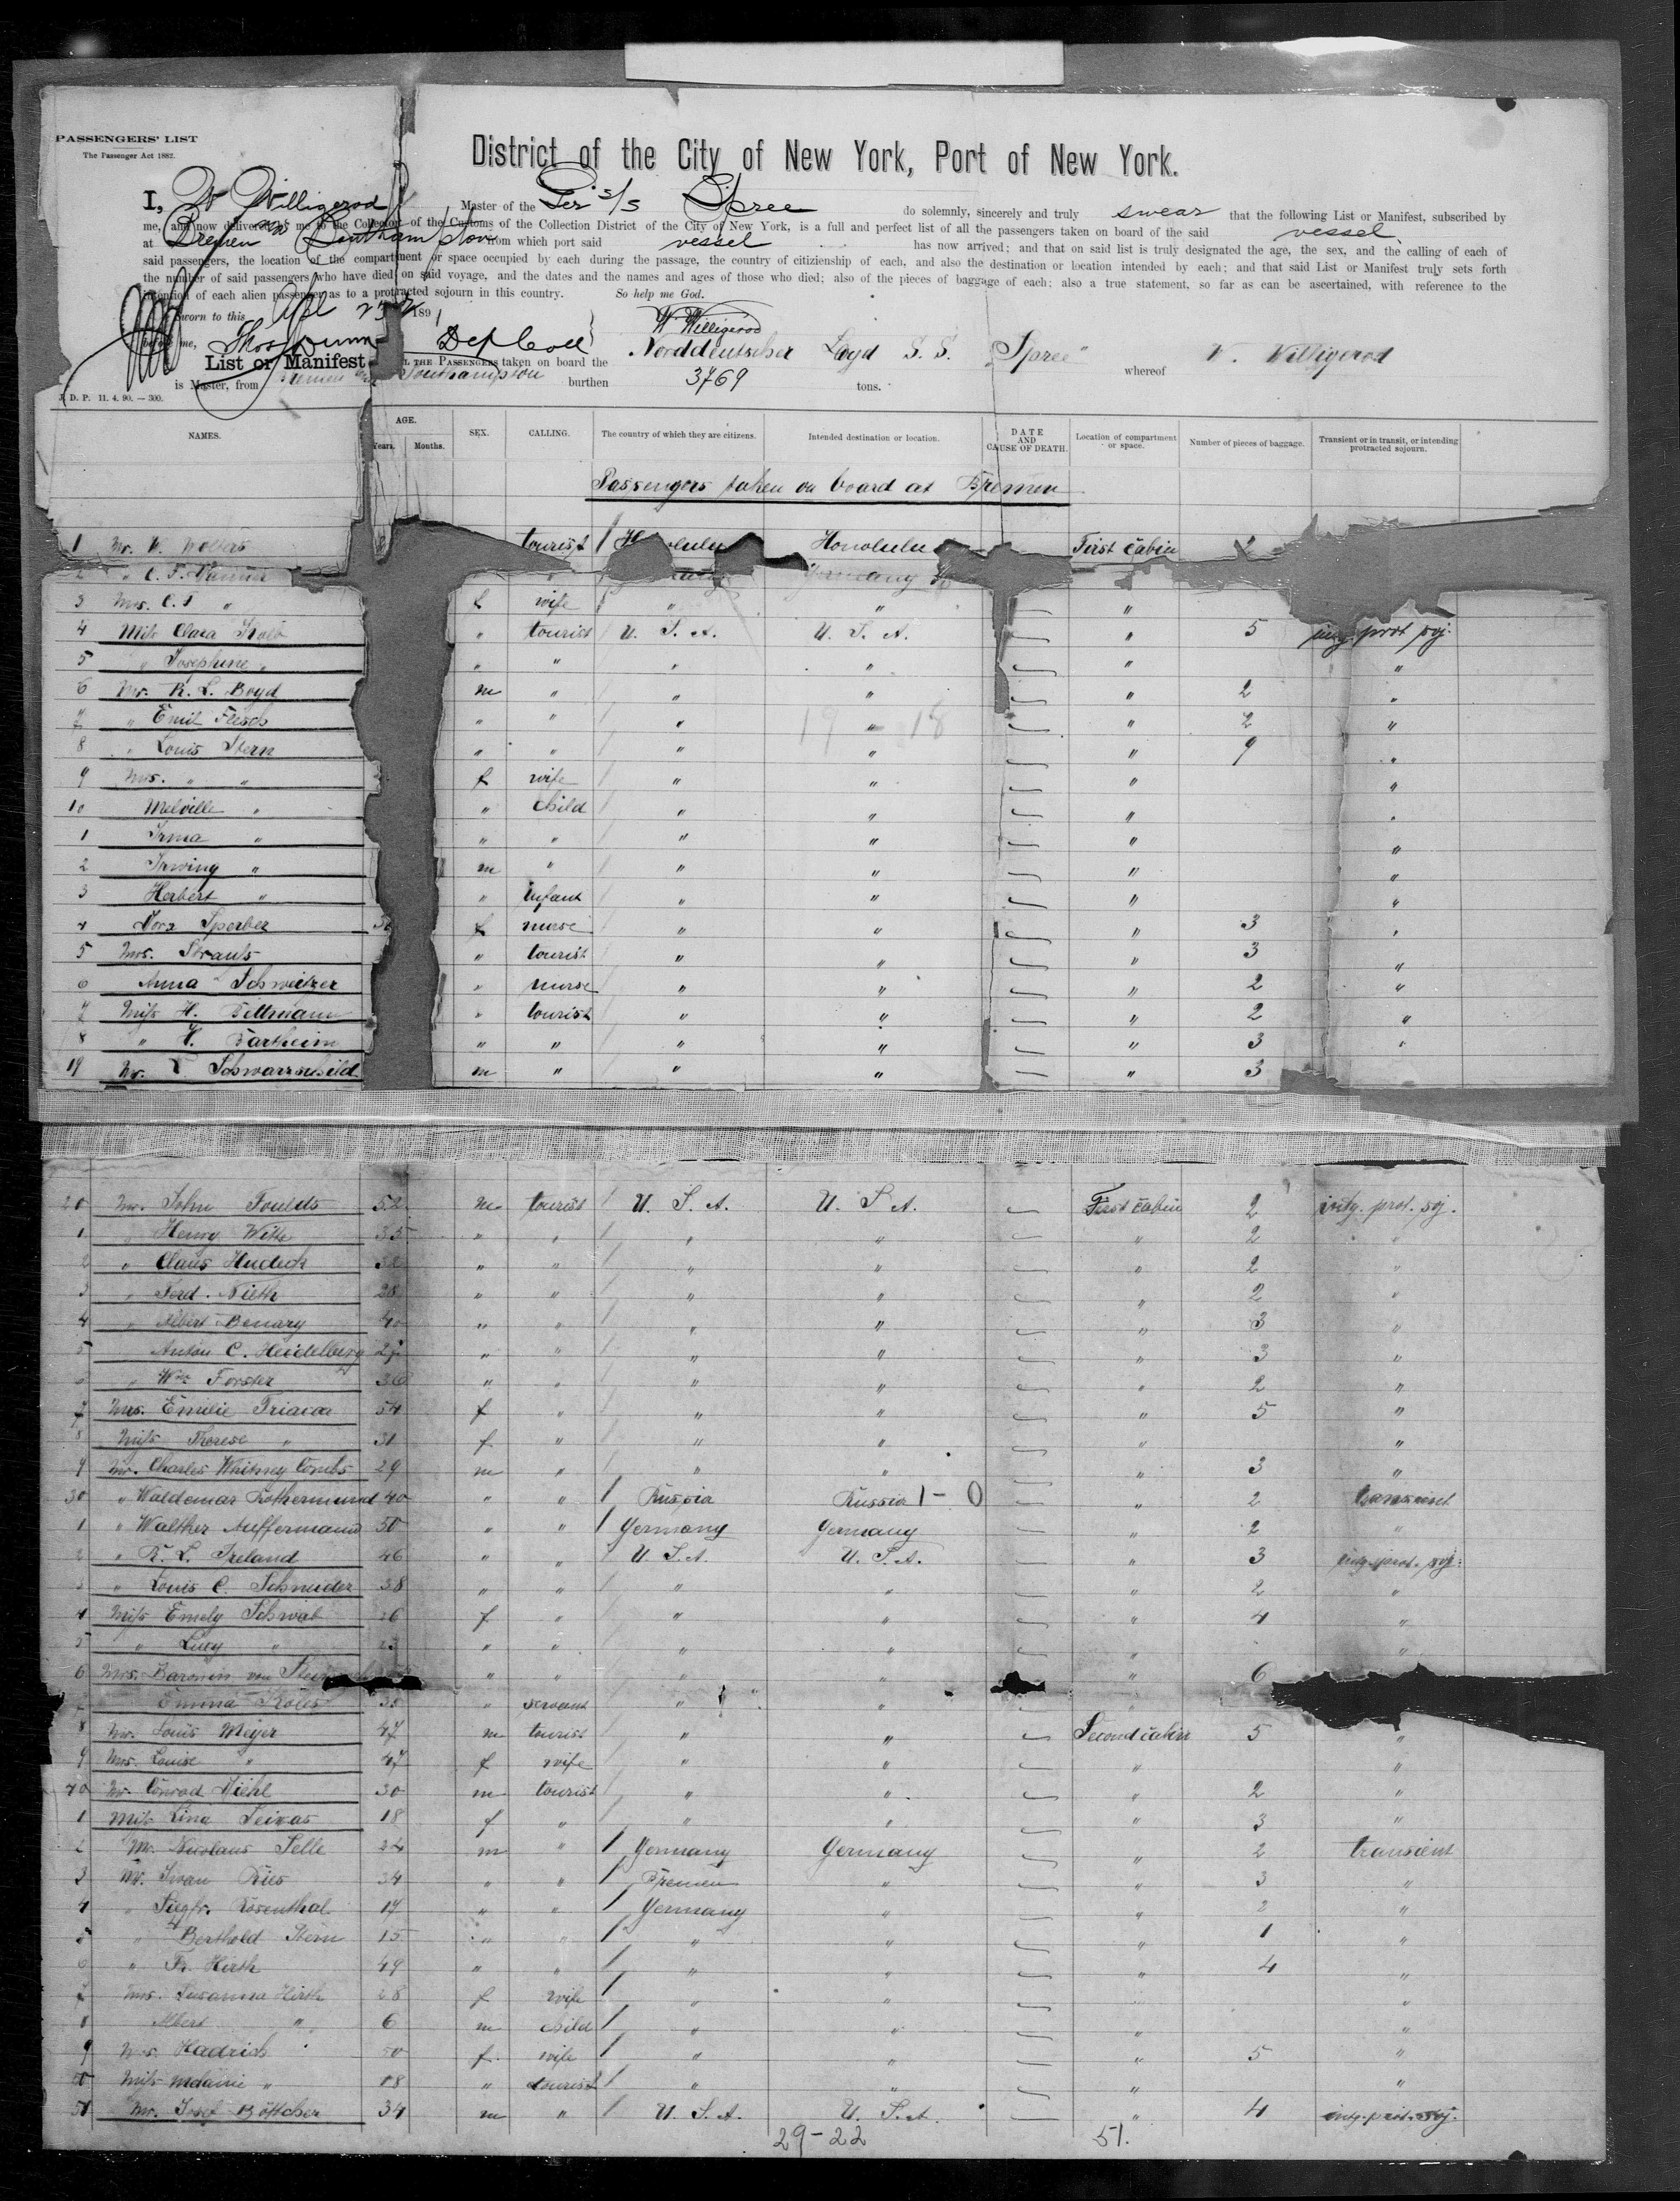 PASSENGERS' LIST
The Passenger Act 1882.
District of the City of New York, Port of New York.
I, W Willigerod Master of the Ger s/s Spree do solemnly, sincerely and truly swear that the following List or Manifest, subscribed by
me, and now delivered by me to the Collector of the Customs of the Collection District of the City of New York, is a full and perfect list of all the passengers taken on board of the said vessel
at Bremen & Southampton from which port said vessel has now arrived; and that on said list is truly designated the age, the sex, and the calling of each of
said passengers, the location of the compartment or space occupied by each during the passage, the country of citizienship of each, and also the destination or location intended by each; and that said List or Manifest truly sets forth
the number of said passengers who have died on said voyage, and the dates and the names and ages of those who died; also of the pieces of baggage of each; also a true statement, so far as can be ascertained, with reference to the
intention of each alien passenger as to a protracted sojourn in this country. So help me God.
Sworn to this Apl 23 1891 W. Willigerod
before me, Thos Dunn Dep Coll
List or Manifest ALL THE PASSENGERS taken on board the Norddeutscher Loyd S. S. "Spree" whereof W. Willigerod
is Master, from Bremen Southampton burthen 3769 tons.
J. D. P. 11. 4. 90. — 300.
NAMES. AGE. Years. Months. SEX. CALLING. The country of which they are citizens. Intended destination or location. DATE AND CAUSE OF DEATH. Location of compartment or space. Number of pieces of baggage. Transient or in transit, or intending protracted sojourn.
Passengers taken on board at Bremen
1 Mr. W. Wolters tourist Honolulu Honolulu First cabin 2
2 " C. F. Germany
3 Mrs. C. F " f wife " " "
4 Miss Clara Kalb " tourist U. S. A. U. S. A. " 5 intg. prot soj.
5 " Josephine " " " " " " "
6 Mr. R. L. Boyd m " " " " 2 "
7 " Emil Flesch " " " " " 2 "
19 - 18
8 " Louis Stern " " " " " 9 "
9 Mrs. " " f wife " " " "
10 Melville " " child " " " "
1 Irma " " " " " " "
2 Irwing " m " " " " "
3 Herbert " " infant " " " "
4 Dora Sperber f nurse " " " 3 "
5 Mrs. Strauss " tourist " " " 3 "
6 Anna Schweitzer " nurse " " " 2 "
7 Miss H. Tillmann " tourist " " " 2 "
8 " H. Bartheim " " " " " 3 "
19 Mr. Schwarzschild m " " " " 3
20 Mr. John Foulds 52 m tourist U. S. A. U. S. A. First cabin 2 intg. prot. soj.
1 " Henry Witte 35 " " " " " 2 "
2 " Claus 32 " " " " " 2 "
3 " Ferd. Nieth 28 " " " " " 2 "
4 " Albert Benary 40 " " " " " 3 "
5 Anton C. Heidelberg 27 " " " " " 3 "
6 " Wm Forster 36 " " " " " 2 "
7 Mrs. Emilie 54 f " " " " 5 "
8 Miss Therese " 31 f " " " " "
9 Mr. Charles Whitney Combs 29 m " " " " 3 "
30 " Waldemar Rothermund 40 " " Russia Russia 1 - 0 " 2 transient
1 " Walther Auffermann 50 " " Germany Germany " 2 "
2 " R. L. Ireland 46 " " U. S. A. U. S. A. " 3 intg. prot. soj.
3 " Louis C. Schneider 38 " " " " " 2 "
4 Miss Emely Schwab 26 f " " " " 4 "
5 " Lucy " 23 " " " " " "
6 Mrs. Baronin von " " " " " 6
7 Emma Koles 35 " servant " " "
8 Mr. Louis Meyer 47 m tourist " " Second cabin 5 "
9 Mrs. Louise " 47 f wife " " " "
40 Mr. Conrad Diehl 30 m tourist " " " 2 "
1 Miss Lina Seivas 18 f " " " " 3 "
2 Mr. Nicolaus Selle 24 m " Germany Germany " 2 transient
3 Mr. Iwan Ries 34 " " Bremen " " 3 "
4 " Siegfr. Rosenthal 17 " " Germany " " 2 "
5 " Berthold Stern 15 " " " " " 1 "
6 " Fr. Hirth 49 " " " " " 4 "
7 Mrs. Susanna Hirth 28 f wife " " "
8 Albert " 6 m child " " " "
9 Mrs. Hadrich 50 f. wife " " " 5 "
50 Miss " 18 " tourist " " " "
51 Mr. Josef Böttcher 34 m " U. S. A. U. S. A. " 4 intg. prot. soj.
29 - 22 51.